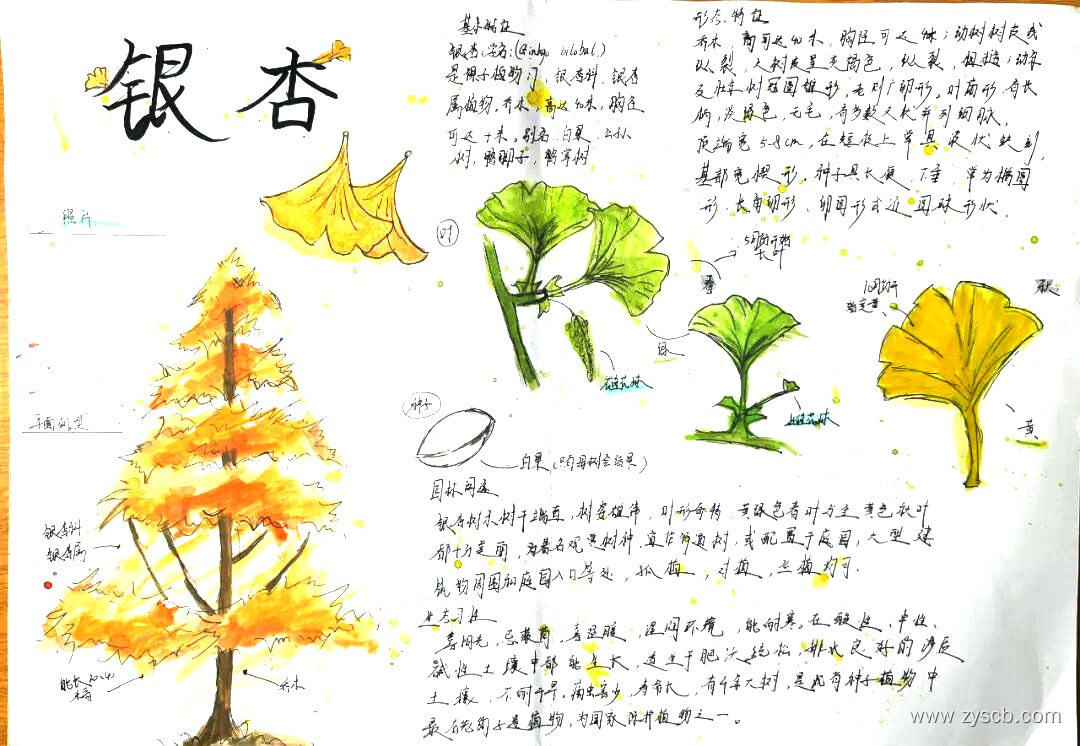 银杏
基本特征
银杏:学名:(Ginkgo biloba L.)
是裸子植物门,银杏科,银杏
属植物。乔木,高达40米,胸径
可达4米。别名:白果,公孙
树,鸭脚子,鸭掌树
形态特征
乔木,高可达40米,胸径可达4米;幼树树皮浅
纵裂,大树皮呈灰褐色,纵裂,粗糙;幼年
及壮年树冠圆锥形,老则广卵形,叶扇形,有长
柄,淡绿色,无毛,有多数叉状并列细脉,
顶端宽5-8cm,在短枝上常具波状缺刻,
基部宽楔形。种子具长梗,下垂,常为椭圆
形,长倒卵形,卵圆形或近圆球形状。
照片
叶
5月份开始
长叶
春
10月份开始变黄
秋
绿
黄
雌花妹
种子
白果(只有母树会结果)
平面
银杏科
银杏属
乔木
园林用途
银杏树木树干端直,树姿雄伟,叶形奇特,黄绿色春叶与金黄色秋叶
都十分美丽,为著名观赏树种,宜作行道树,或配置于庭园,大型建
筑物周围和庭园入口等处,孤植,对植,丛植均可.
生态习性
喜阳光,忌荫蔽,喜湿暖,湿润环境,能耐寒。在酸性,中性,
碱性土壤中都能生长,适生于肥沃疏松,排水良好的沙质
土壤,不耐干旱。病虫害少,寿命长,有千年大树,是现存种子植物中
最古老的孑遗植物,为国家保护植物之一。
www.zyscb.com